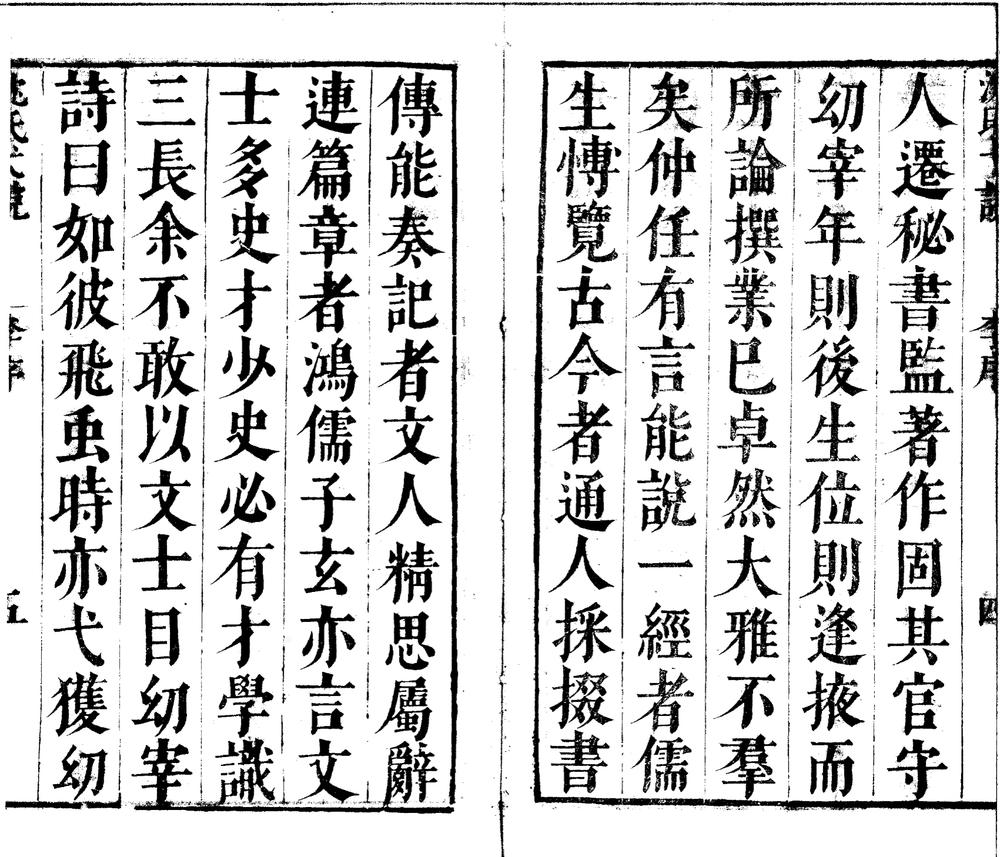 人遷秘書監著作固其官守
幼宰年則後生位則逢掖而
所論撰業巳卓然大雅不羣
矣仲任有言能說一經者儒
生愽覽古今者通人採掇書
傳能奏記者文人精思屬辭
連篇章者鴻儒子玄亦言文
士多史才少史必有才學識
三長余不敢以文士目幼宰
詩曰如彼飛䖝時亦弋獲幼
李序
五